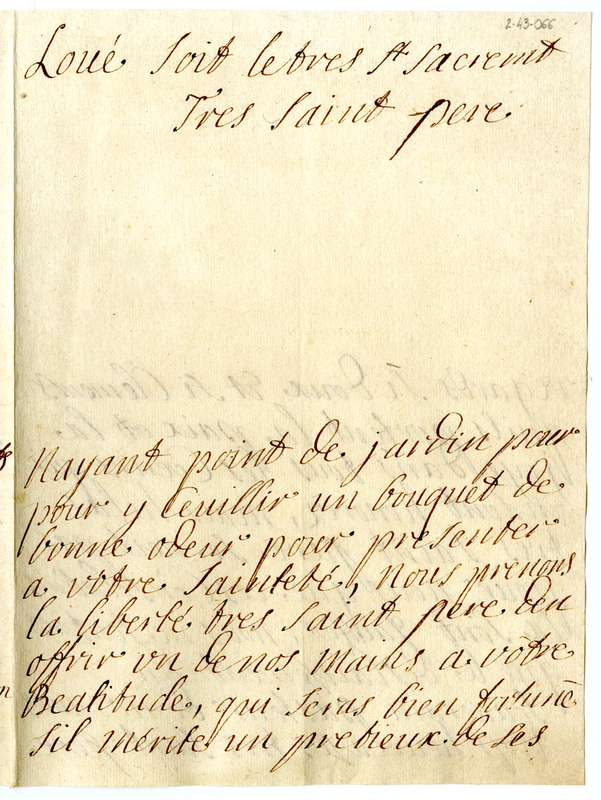 2-43-066
Loué soit le tres St Sacremt
Tres Saint pere
Nayant point de jardin pour
pour y Ceuillir un bouquet de
bonne odeur pour presenter
a vôtre Sainteté, nous prenons
la liberté tres Saint pere den
offrir un de nos mains a vôtre
Beatitude, qui seras bien fortuné
sil mérite un pretieux de ses